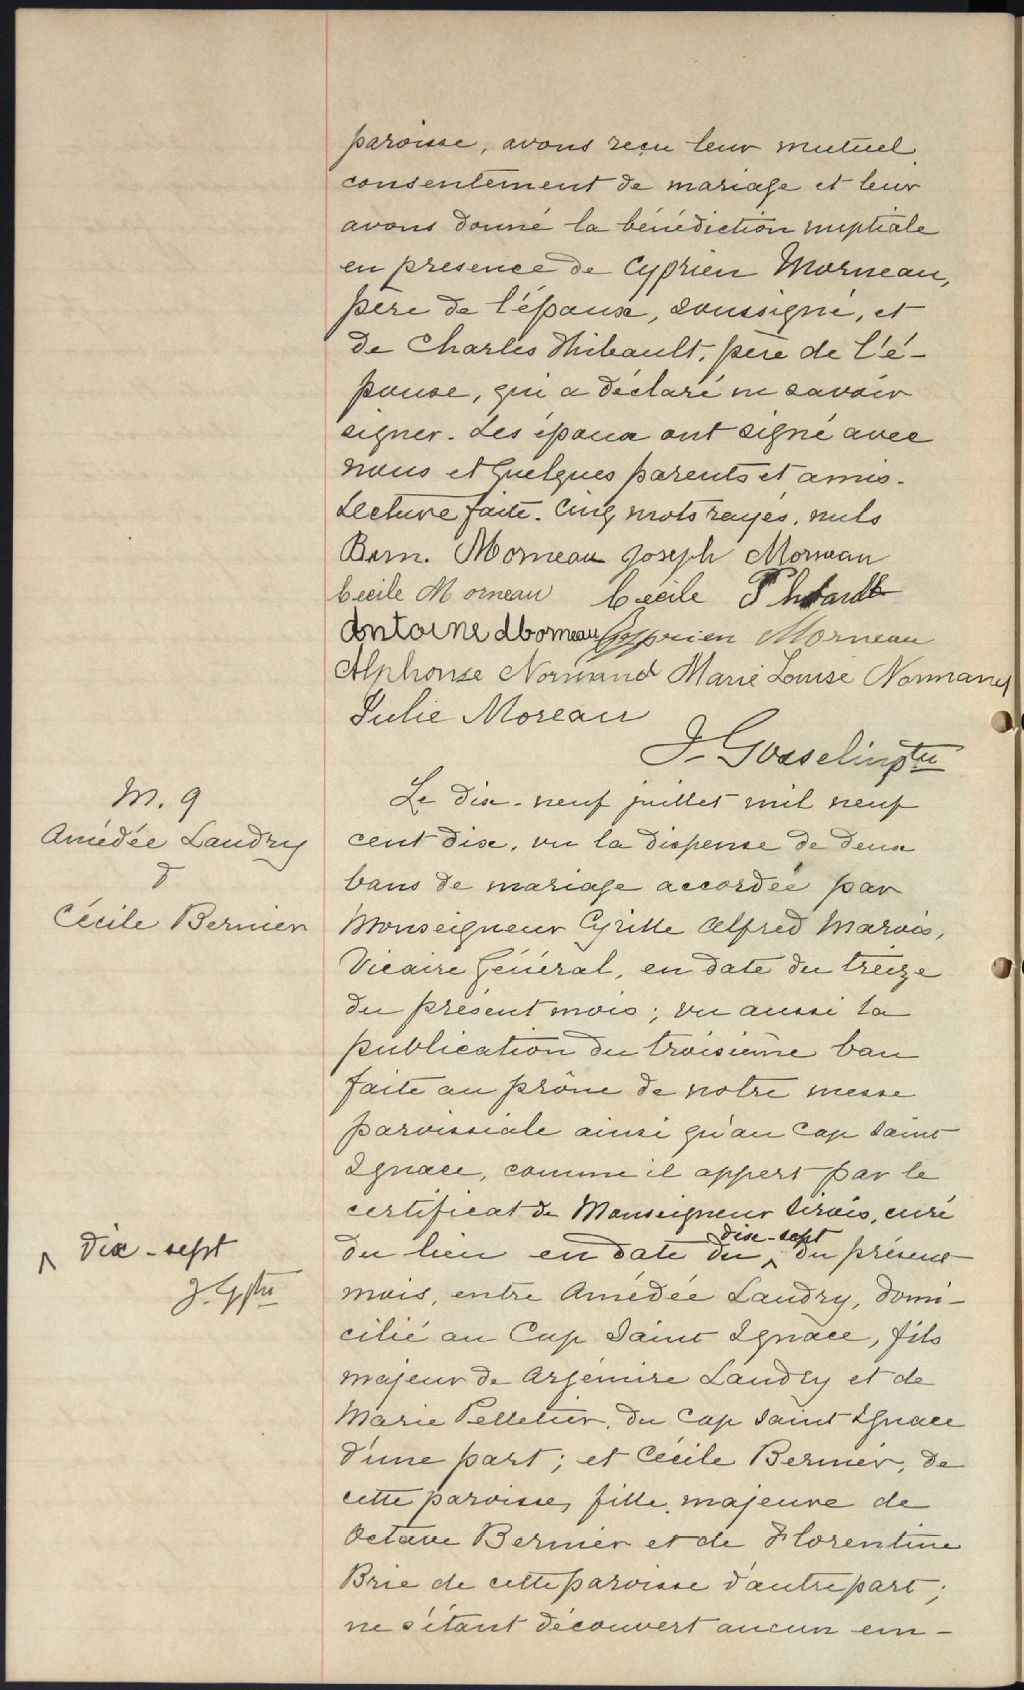 paroisse, avons reçu leur mutuel
consentement de mariage et leur
avons donné la bénédiction nuptiale
en présence de Cyprien Morneau,
père de l'époux, soussigné, et
de Charles Thibault, père de l'é-
pouse, qui a déclaré ne savoir
signer. Les époux ont signé avec
nous et quelques parents et amis.
Lecture faite. Cinq mots rayés, nuls
Bern. Morneau Joseph Morneau
Cecile Morneau Cécile
Antoine Morneau Cyprien Morneau
Alphonse Normand Marie Louise Normand
Julie Moreau
J. Gosselin ptre
M. 9
Amédée Landry
&
Cécile Bernier
Le dix-neuf juillet mil neuf
cent dix, vu la dispense de deux
bans de mariage accordée par
Monseigneur Cyrille Alfred Marois,
Vicaire Général, en date du treize
du présent mois; vu aussi la
publication du troisième ban
faite au prône de notre messe
paroissiale ainsi qu'au Cap Saint
Ignace, comme il appert par le
certificat de Monseigneur Sirois, curé
du lieu en date du ^ dix-sept du présent
^ dix-sept
J. G. ptre
mois, entre Amédée Landry, domi-
cilié au Cap Saint Ignace, fils
majeur de Arsémire Landry et de
Marie Pelletier, du Cap Saint Ignace
d'une part; et Cécile Bernier, de
cette paroisse, fille majeure de
Octave Bernier et de Florentine
Brie de cette paroisse d'autre part;
ne s'étant découvert aucun em-